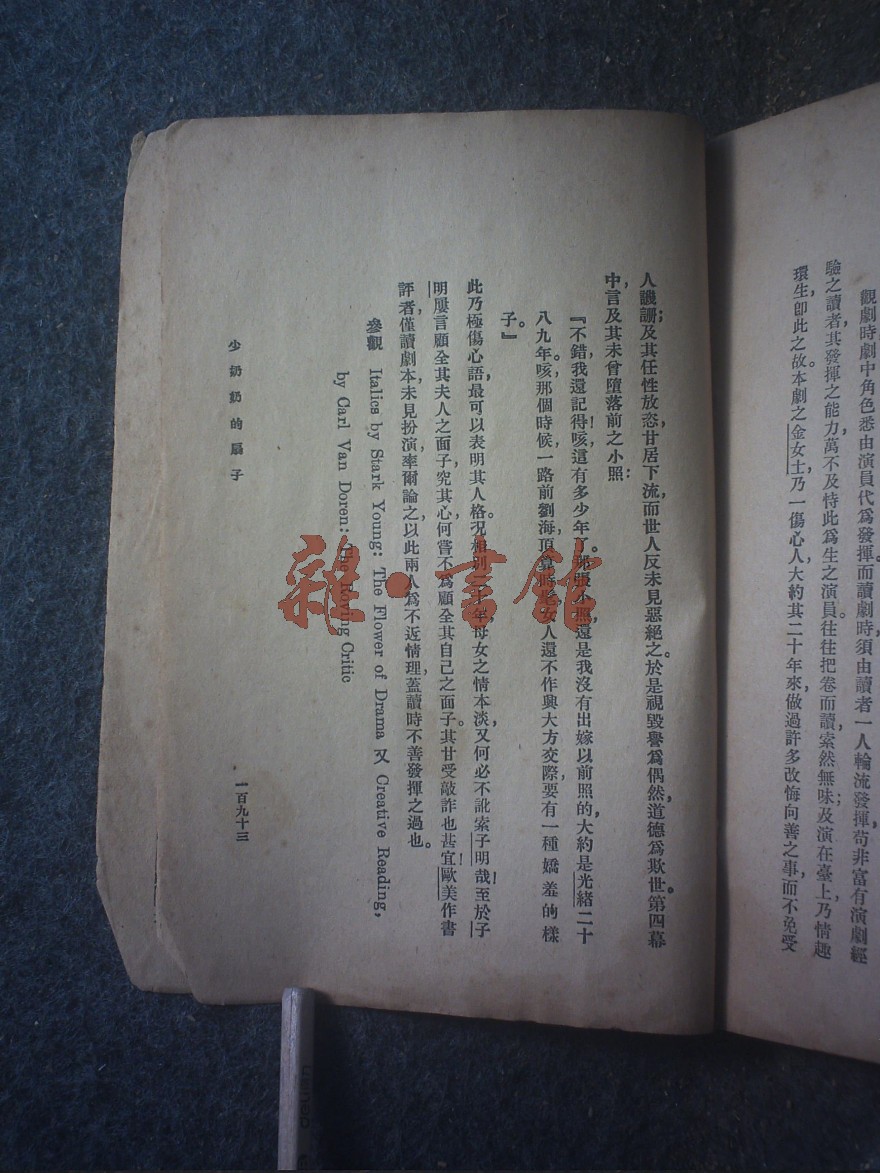 觀劇時劇中角色悉由演員代爲發揮而讀劇時須由讀者一人輪流發揮，苟非富有演劇經
驗之讀者，其發揮之能力萬不及恃此爲生之演員。往往把卷而讀，索然無味；及演在臺上，乃情趣
環生，卽此之故。本劇之金女士，乃一傷心人。大約其二十年來，做過許多改悔向善之事，而不免受
人譏訕；及其任性放恣，甘居下流，而世人反未見惡絕之。於是視毀譽爲偶然，道德爲欺世。第四幕
中，言及其未曾墮落前之小照：
『不錯，我還記得！咳，這有多少年了。那張小照，還是我沒有出嫁以前照的，大約是光緒二十
八九年。咳，那個時候，一路前劉海頂算時髦，女人還不作興大方交際，要有一種嬌羞的樣
子。』
此乃極傷心語，最可以表明其人格。況相別二十年，母女之情本淡，又何必不訛索子明哉！至於子
明屢言顧全其夫人之面子，究其心何嘗不爲顧全其自己之面子。其甘受敲詐也甚宜！歐美作書
評者，僅讀劇本，未見扮演，率爾論之，以此兩人爲不近情理，蓋讀時不善發揮之過也。
參觀 Italics by Stark Young: The Flower of Drama 又 Creative Reading,
by Carl Van Doren: The Roving Critic
少奶奶的扇子
一百九十三
雜·書館